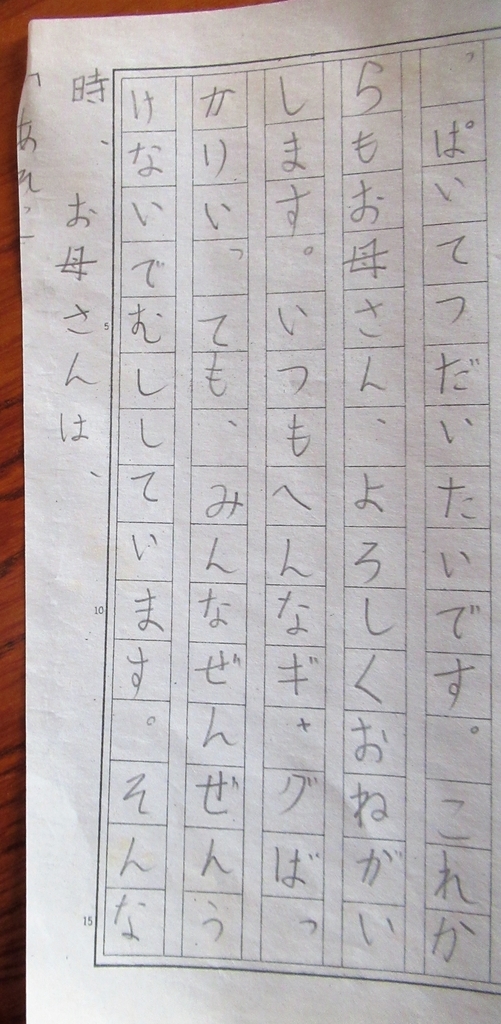 っぱいてつだいたいです。これか
らもお母さん、よろしくおねがい
します。いつもへんなギャグばっ
かりいっても、みんなぜんぜんう
けないでむししています。そんな
時、お母さんは、
「あれっ